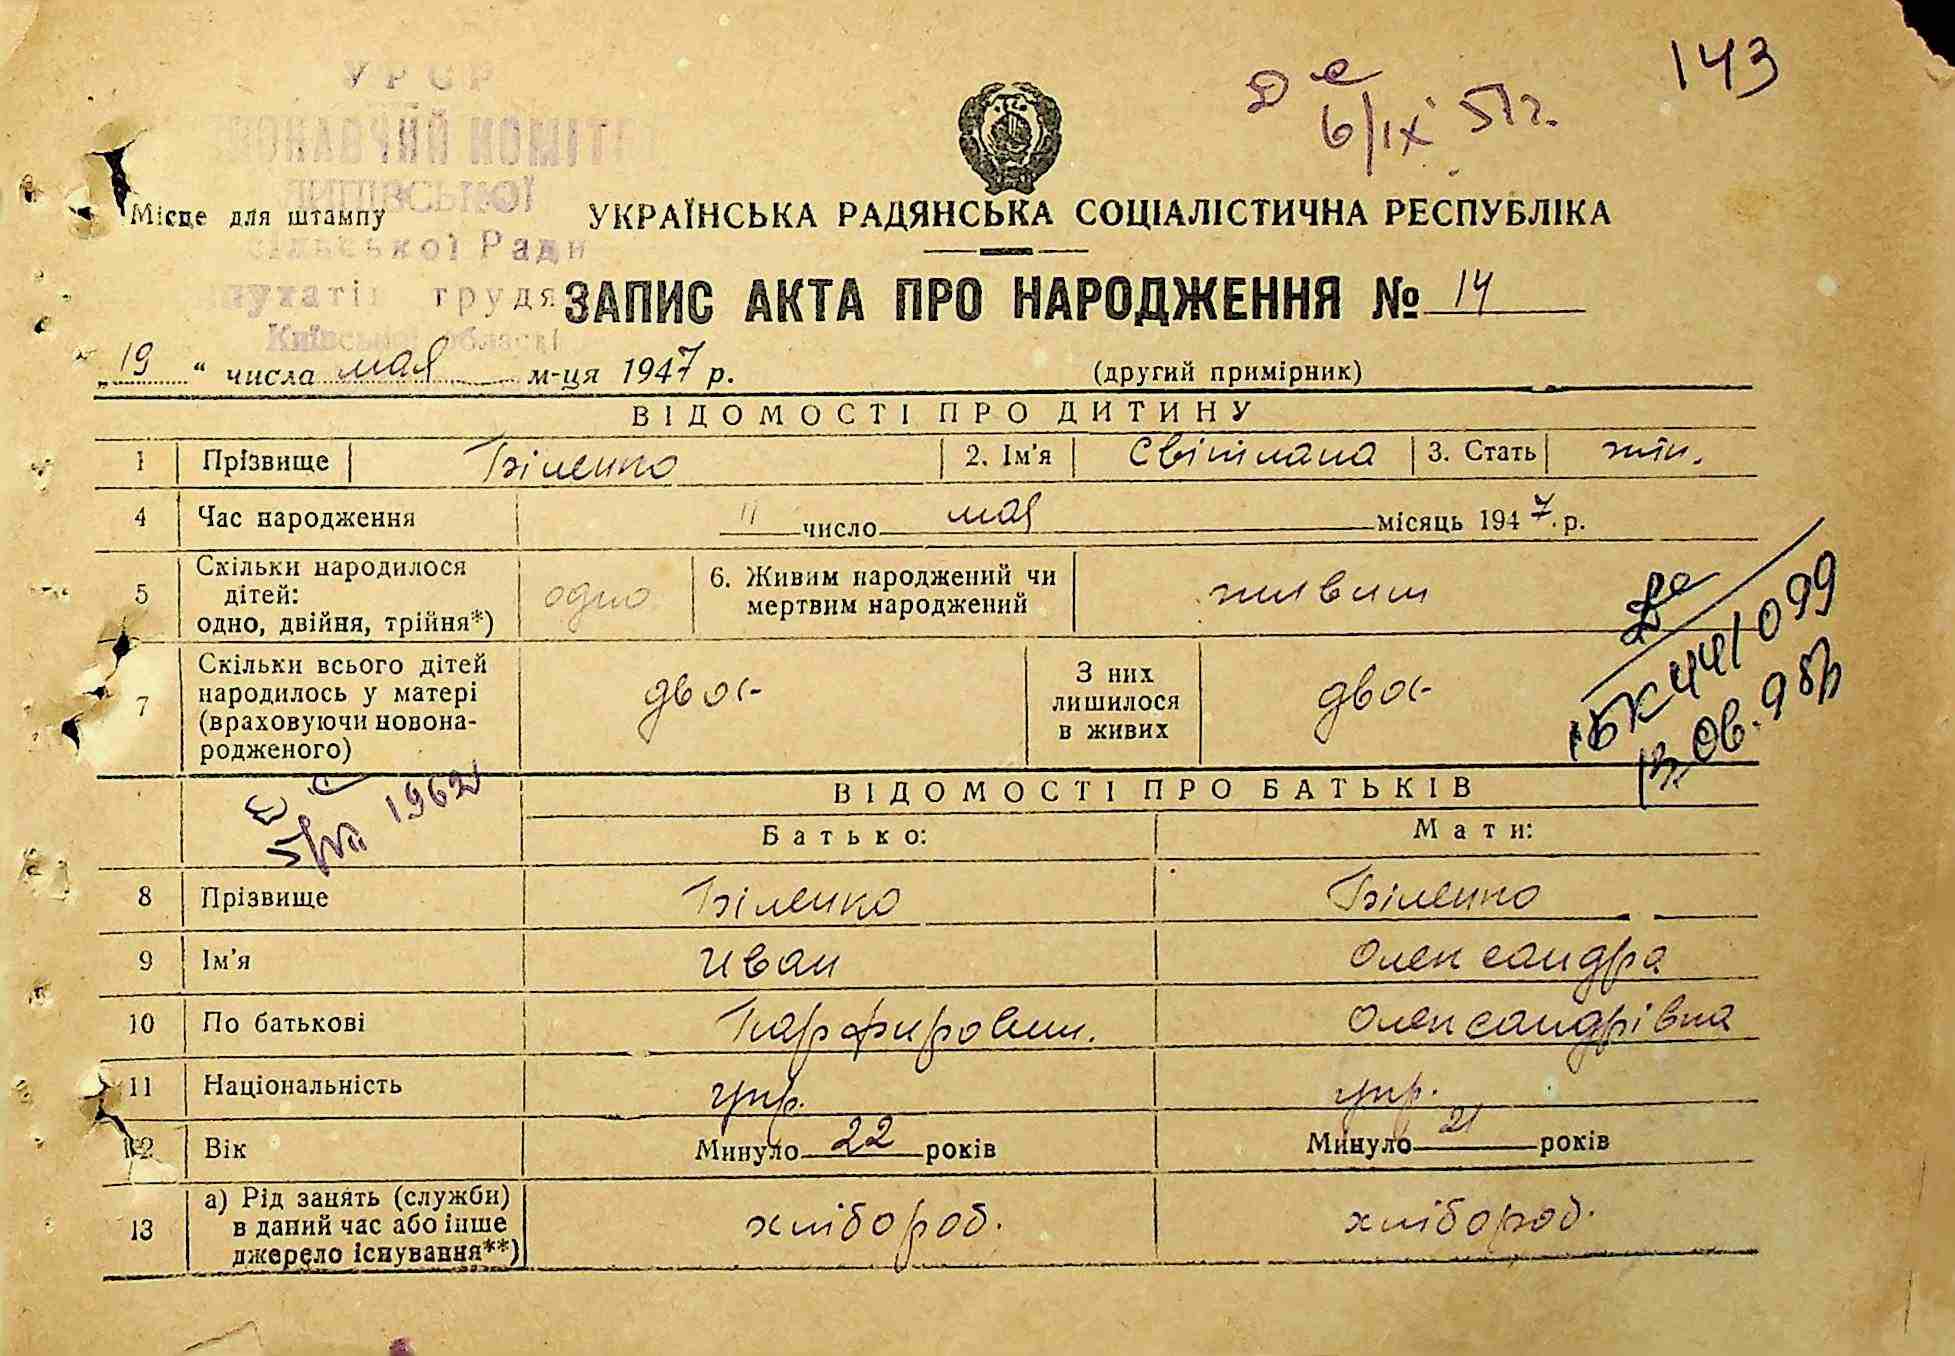 143
6/IX 51 г.
УРСР
КОМІТ
сільської Ради
трудя
Київської області
Місце для штампу
УКРАЇНСЬКА РАДЯНСЬКА СОЦІАЛІСТИЧНА РЕСПУБЛІКА
ЗАПИС АКТА ПРО НАРОДЖЕННЯ № 14
„19“ числа мая м-ця 1947 р. (другий примірник)
ВІДОМОСТІ ПРО ДИТИНУ
1 Прізвище Біленко 2. Ім'я Світлана 3. Стать жін.
4 Час народження 11 число мая місяць 1947. р.
5 Скільки народилося
дітей:
одно, двійня, трійня*) одно 6. Живим народжений чи
мертвим народжений живим
7 Скільки всього дітей
народилось у матері
(враховуючи новона-
родженого) двоє З них
лишилося
в живих двоє
1БК 441099
13.06.98р
1962
ВІДОМОСТІ ПРО БАТЬКІВ
Батько: Мати:
8 Прізвище Біленко Біленко
9 Ім'я Иван Олександра
10 По батькові Парфирович. Олександрівна
11 Національність укр. укр.
12 Вік Минуло 22 років Минуло 21 років
13 а) Рід занять (служби)
в даний час або інше
джерело існування**) хлібороб. хлібороб.